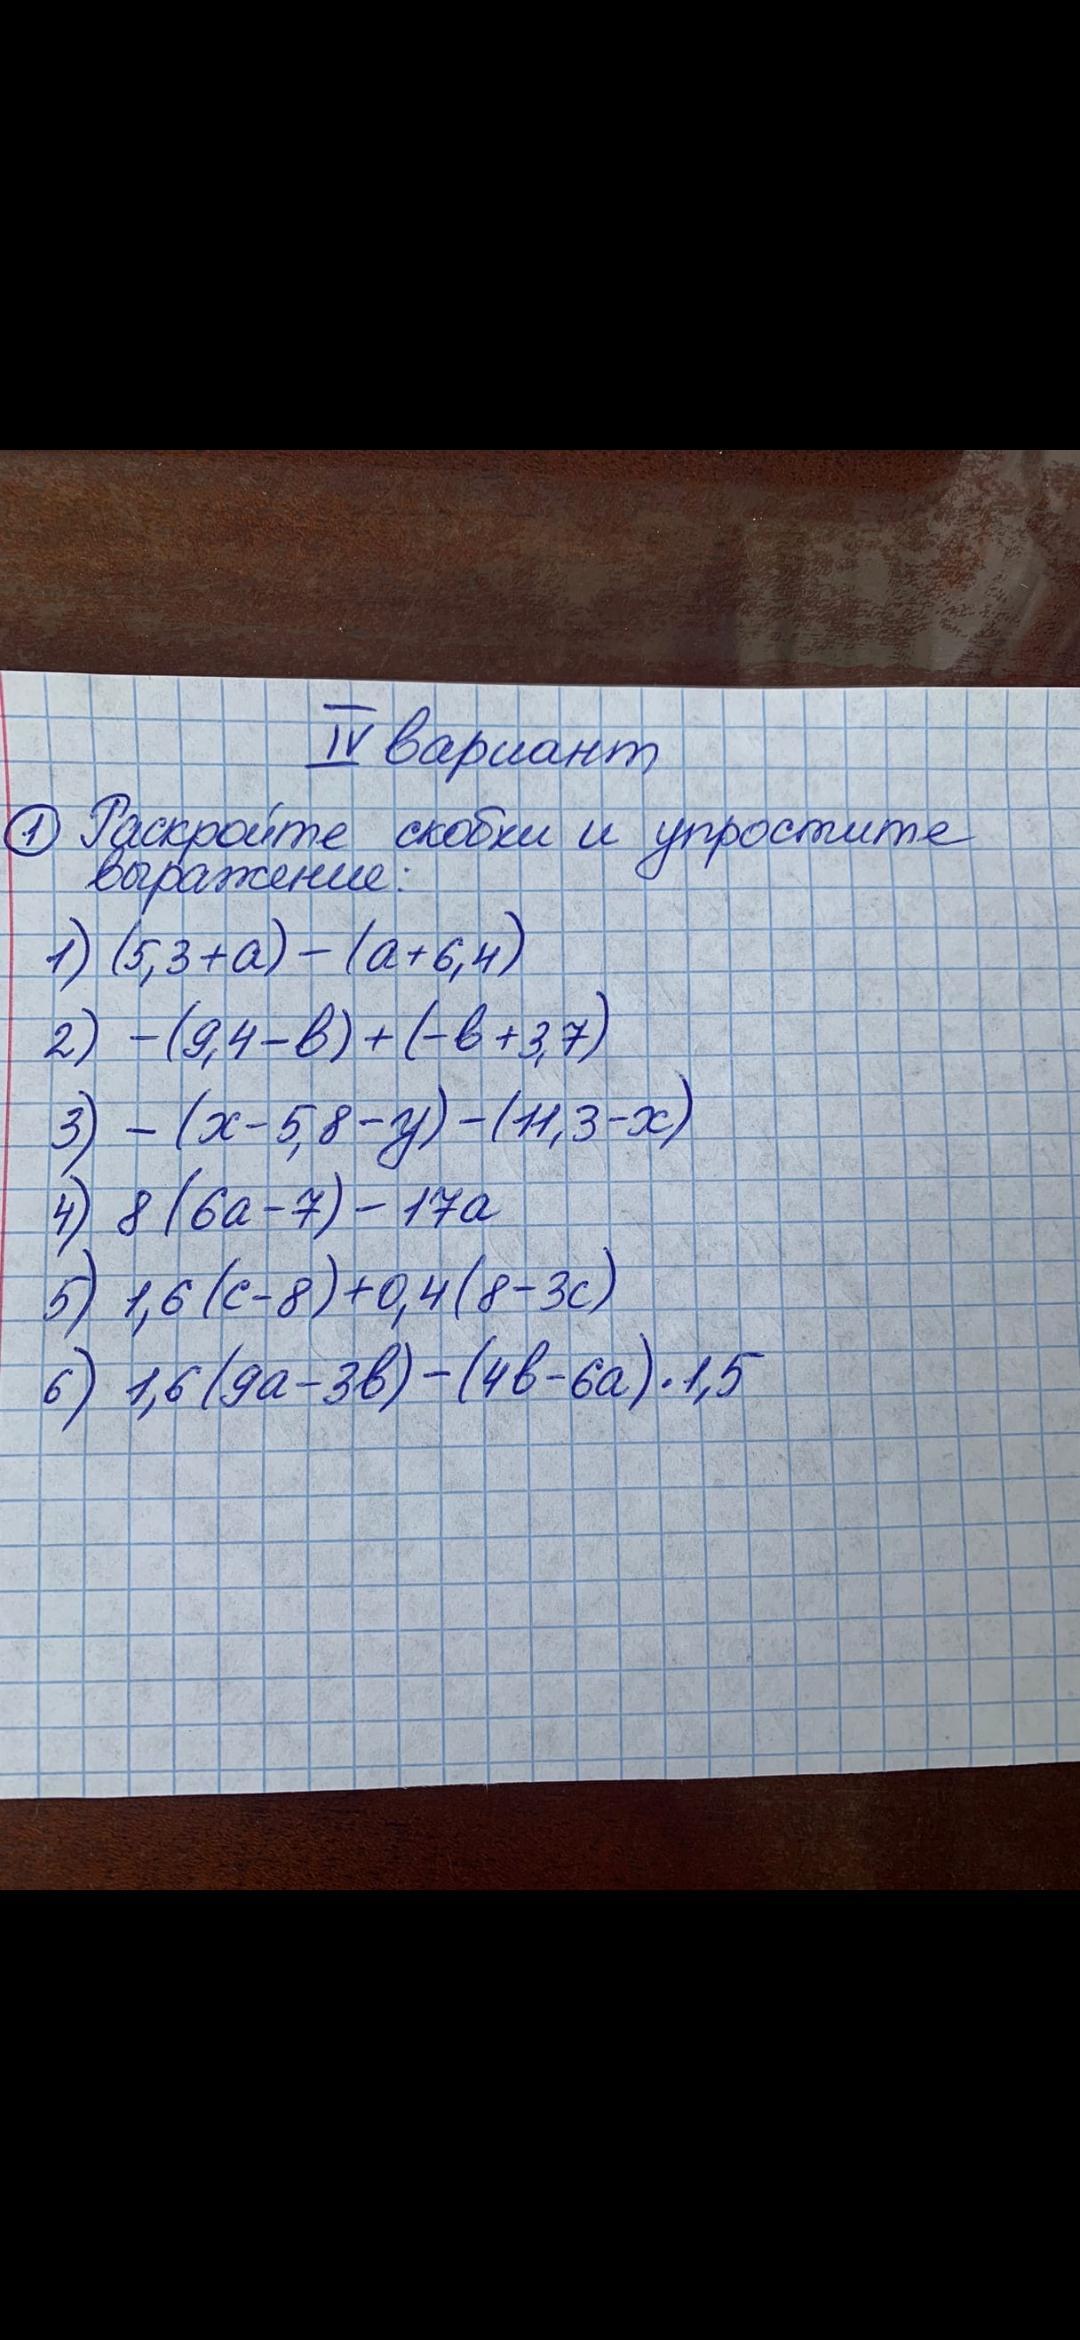 IV вариант
1 Раскройте скобки и упростите
выражение:
1) (5,3+а)-(а+6,4)
2) -(9,4-в)+(-в+3,7)
3) -(х-5,8-у)-(11,3-х)
4) 8(6а-7)-17а
5) 1,6(с-8)+0,4(8-3с)
6) 1,6(9а-3в)-(4в-6а)·1,5